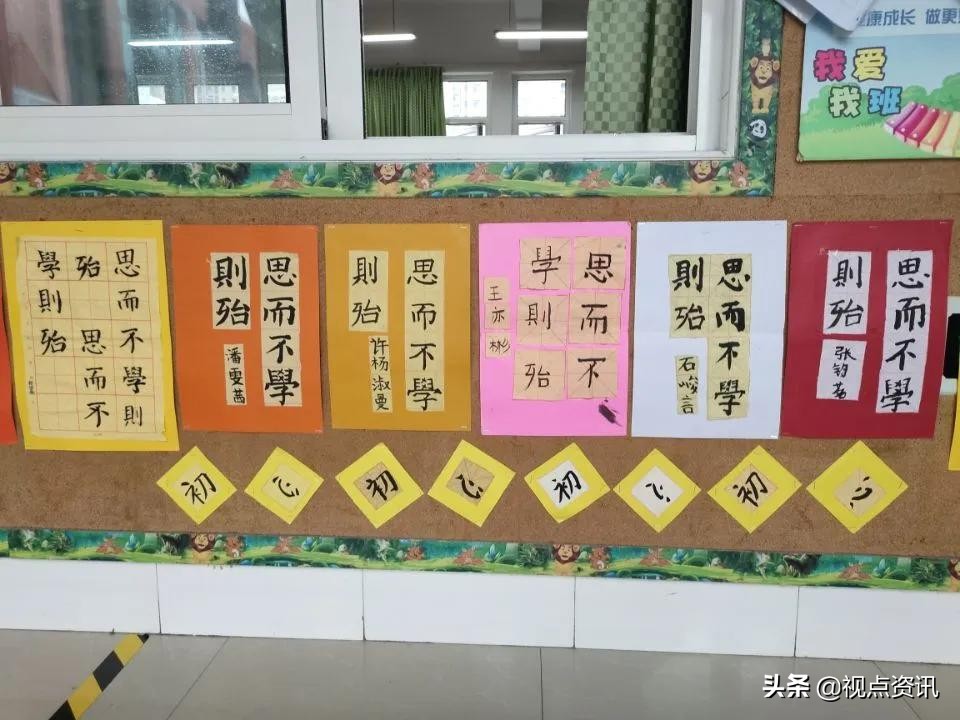 康成长 做更
我爱
我班
思而不學則
殆 思而不
學則殆
思而不學
則殆
潘雯茜
思而不學
則殆
许杨淑曼
思而不
學則殆
王亦彬
思而不學
則殆
石峻言
思而不學
則殆
初 心 初 心 初 心 初 心
头条 @视点资讯